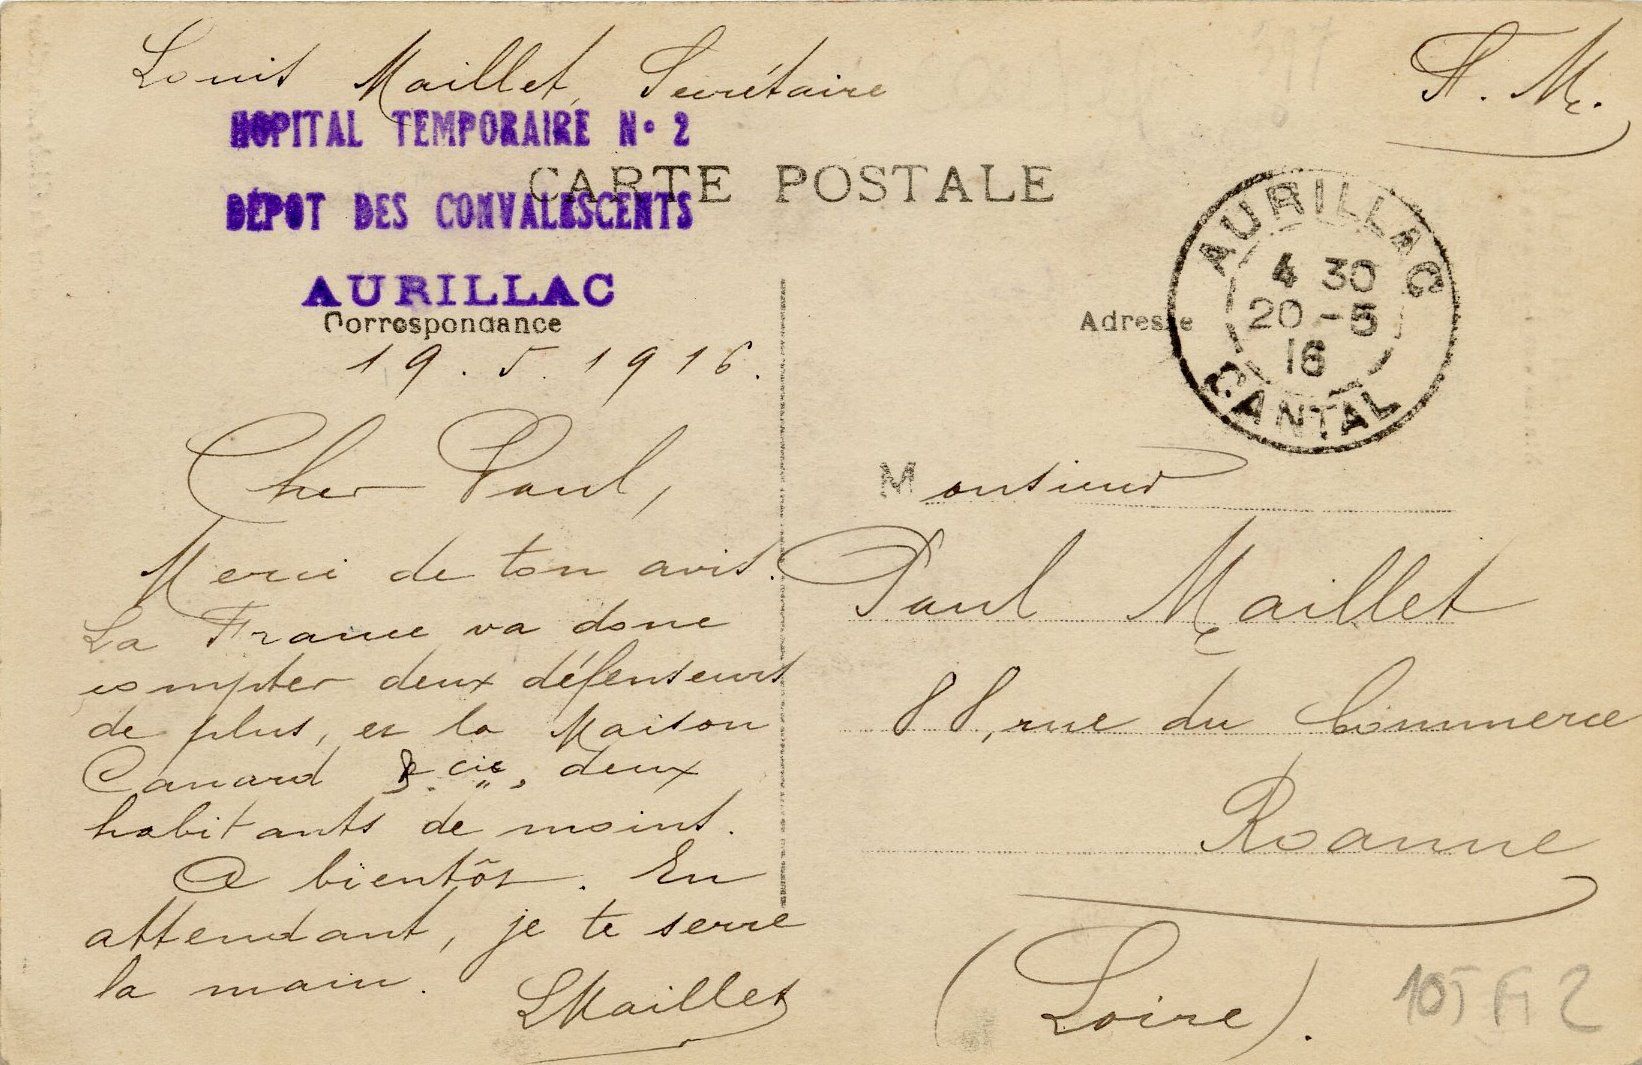 Louis Maillet, Secrétaire
F. M.
HOPITAL TEMPORAIRE N° 2
CARTE POSTALE
DÉPOT DES CONVALESCENTS
AURILLAC
Correspondance
Adresse
AURILLAC
4 30
20 - 5
16
CANTAL
19.5.1916.
Cher Paul,
Merci de ton avis.
La France va donc
compter deux défenseurs
de plus, et la Maison
Canard & Cie, deux
habitants de moins.
A bientôt. En
attendant, je te serre
la main.
LMaillet
Monsieur
Paul Maillet
88, rue du Commerce
Roanne
(Loire).
105 Fi 2